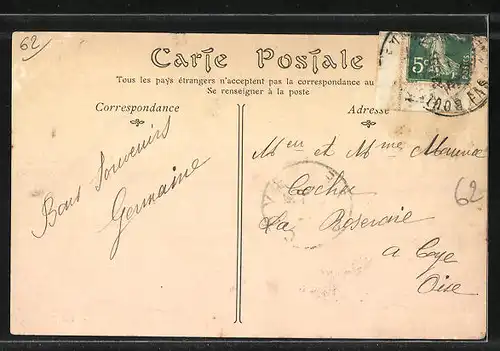 62
Carte Postale
Tous les pays étrangers n'acceptent pas la correspondance au
Se renseigner à la poste
Correspondance
Adresse
5c
POSTES
Bons Souvenirs
Germaine
Meur et Mme Maurice
Cochu
La Roseraie
a Coye
Oise
62